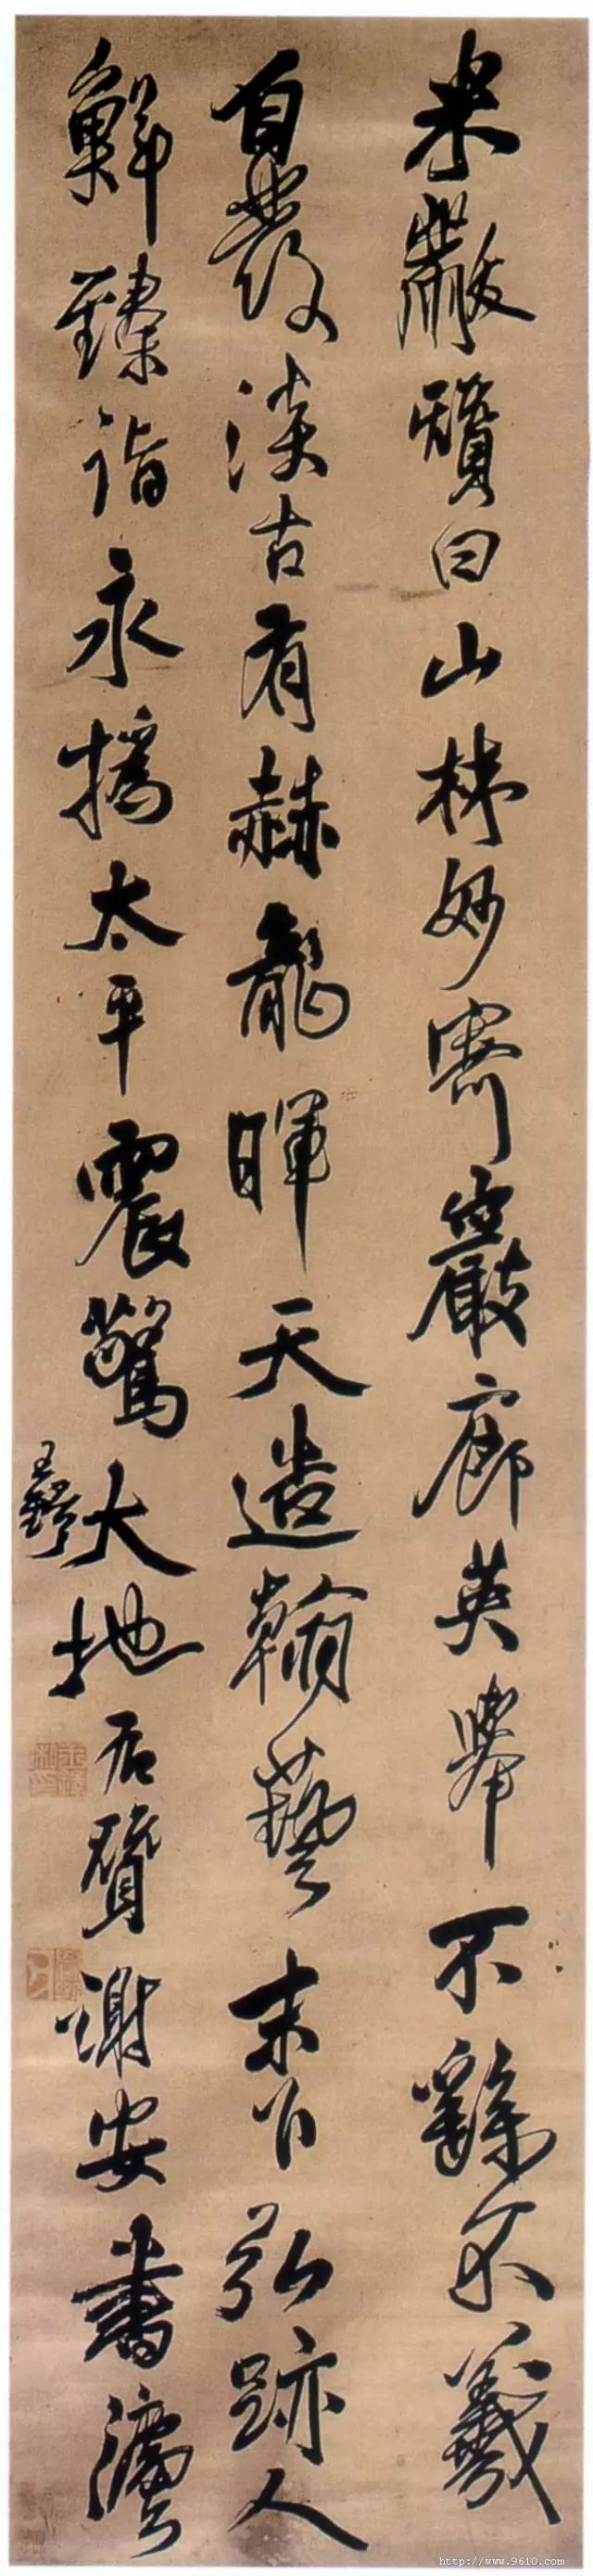 米黻贊曰山林妙寄巖廊英舉不繇不羲
自發淡古有赫龍暉天造翰藝末以弘跡人
鮮臻詣永太平震驚大地右贊謝安書灋
王鐸
http://www.9610.com